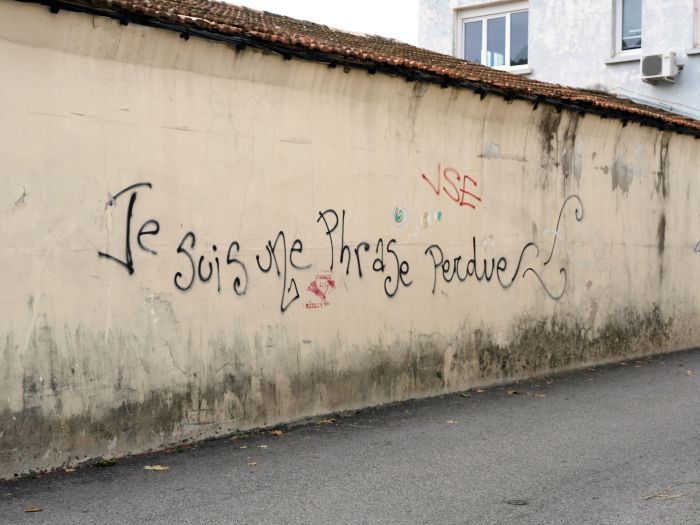 VSE
Je suis une Phrase Perdue